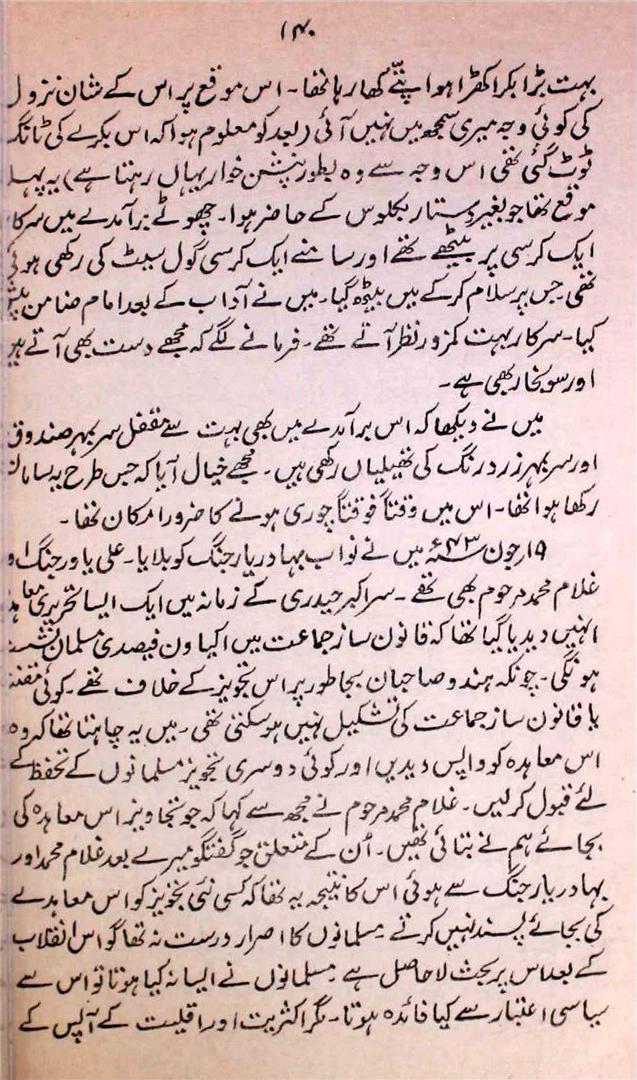 ۱۴۰
بہت بڑا بکرا کھڑا ہوا پتّے کھا رہا تھا۔ اس موقع پر اس کے شان نزول
کی کوئی وجہ میری سمجھ میں نہیں آئی (بعد کو معلوم ہوا کہ اس بکرے کی ٹانگ
ٹوٹ گئی تھی اس وجہ سے وہ بطور پنشن خوار یہاں رہتا ہے) یہ پہلا
موقع تھا جو بغیر دستار بگلوس کے حاضر ہوا۔ چھوٹے برآمدے میں سرکار
ایک کرسی پر بیٹھے تھے اور سامنے ایک کرسی گول سیٹ کی رکھی ہوئی
تھی جس پر سلام کرکے میں بیٹھ گیا۔ میں نے آداب کے بعد امام ضامن پیش
کیا۔ سرکار بہت کمزور نظر آتے تھے۔ فرمانے لگے کہ مجھے دست بھی آتے ہیں
اور سو بخار بھی ہے۔
میں نے دیکھا کہ اس برآمدے میں بھی بہت سے مقفل سر بہر صندوق
اور سر بہر زرد رنگ کی تھیلیاں رکھی ہیں۔ مجھے خیال آیا کہ جس طرح یہ سامان
رکھا ہوا تھا۔ اس میں وقتاً فوقتاً چوری ہونے کا ضرور امکان تھا۔
۱۹ جون ۴۳ء میں نے نواب بہادر یار جنگ کو بلایا۔ علی یاور جنگ او
غلام محمد مرحوم بھی تھے۔ سر اکبر حیدری کے زمانہ میں ایک ایسا تحریری معاہدہ
انہیں دیدیا گیا تھا کہ قانون ساز جماعت میں اکیاون فیصدی مسلمان نشست
ہونگی۔ چونکہ ہندو صاحبان بجا طور پر اس تجویز کے خلاف تھے۔ کوئی مقننہ
یا قانون ساز جماعت کی تشکیل نہیں ہوسکتی تھی۔ میں یہ چاہتا تھا کہ وہ
اس معاہدہ کو واپس دیدیں اور کوئی دوسری تجویز مسلمانوں کے تحفظ کے
لئے قبول کرلیں۔ غلام محمد مرحوم نے مجھ سے کہا کہ جو تجاویز اس معاہدہ کی
بجائے ہم نے بتائی تھیں۔ اُن کے متعلق جو گفتگو میرے بعد غلام محمد اور
بہادر یار جنگ سے ہوئی اس کا نتیجہ یہ تھا کہ کسی نئی تجویز کو اس معاہدے
کی بجائے پسند نہیں کرتے۔ مسلمانوں کا اصرار درست نہ تھا گو اس انقلاب
کے بعد اس پر بحث لاحاصل ہے۔ مسلمانوں نے ایسا نہ کیا ہوتا تو اس سے
سیاسی اعتبار سے کیا فائدہ ہوتا۔ مگر اکثریت اور اقلیت کے آپس کے